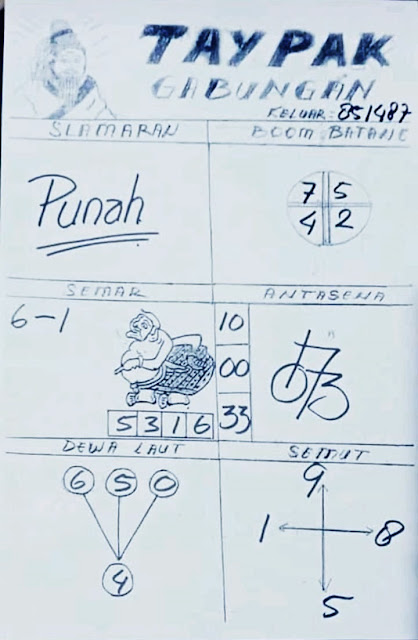 TAYPAK
GABUNGAN
KELUAR: 851487
SLAMARAN
BOOM BATANG
Punah
7 5
4 2
SEMAR
ANTASENA
6-1
10
00
33
5 3 1 6
DEWA LAUT
SEMUT
6 5 0
4
9
1 8
5